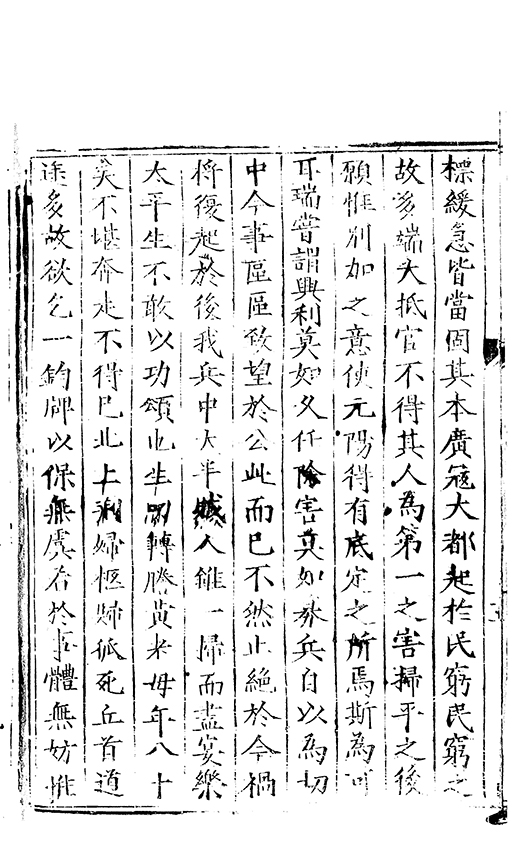 標緩急皆當固其本廣寇大都起於民窮民窮之
故多端大抵官不得其人為第一之害掃平之後
願惟別加之意使元陽得有底定之所焉斯為可
耳瑞嘗謂興利莫如久任除害莫如養兵自以為切
中今事區區致望於公此而已不然止絕於今禍
將復起於後我兵中大半賊人雖一掃而盡宴樂
太平生不敢以功頌也生罰轉勝黃老母年八十
矣不堪奔走不得已北上洲婦柩歸孤死丘首道
途多故欲乞一鈞牌以保無虞若於事體無妨惟